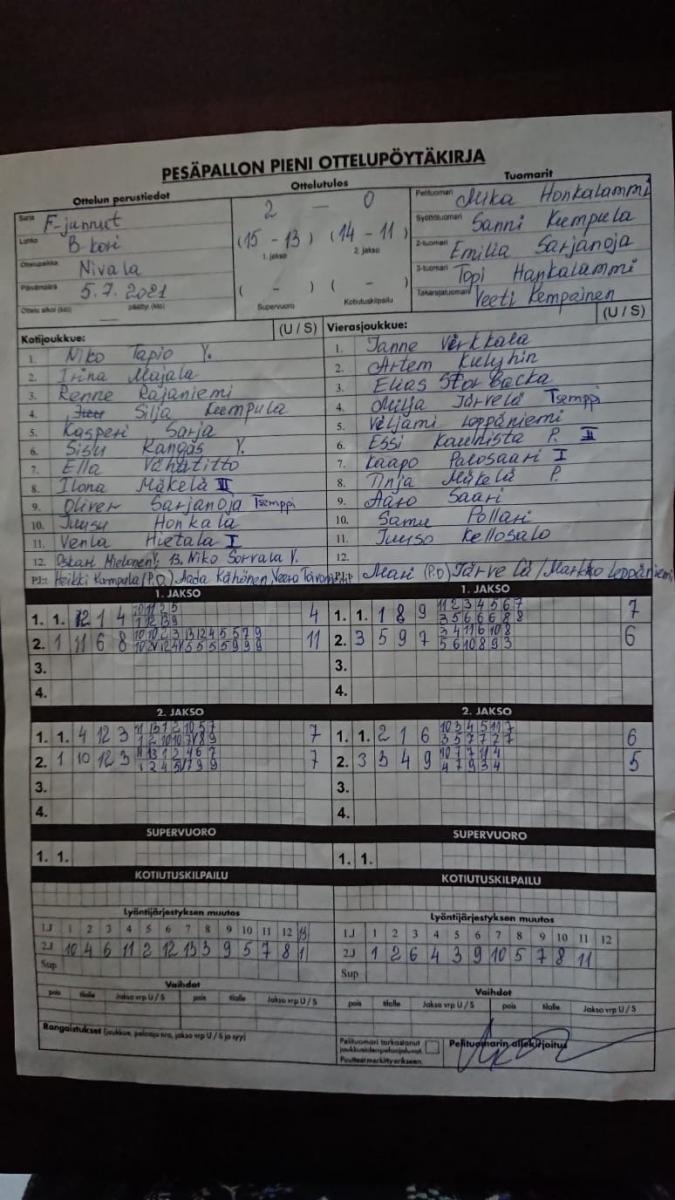 PESÄPALLON PIENI OTTELUPÖYTÄKIRJA
Ottelun perustiedot
Sarja F-junnut
Lohko B-kori
Ottelupaikka Nivala
Päivämäärä 5.7.2021
Ottelu alkoi (klo) päättyi (klo)
Ottelutulos
2 — 0
(15 - 13) (14 - 11)
1. jakso 2. jakso
( - ) ( - )
Supervuoro Kotiutuskilpailu
Tuomarit
Pelituomari Mika Honkalammi
Syöttötuomari Sanni Kumpula
2-tuomari Emilia Sarjanoja
3-tuomari Topi Hankalammi
Takarajatuomari Veeti Kempainen
Kotijoukkue: (U / S)
1. Niko Tapio Y.
2. Irina Majala
3. Renne Rajaniemi
4. Silja Kumpula
5. Kasperi Sarja
6. Sisu Kangas Y.
7. Ella Vähätiitto
8. Ilona Mäkelä II
9. Oliver Sarjanoja Tsemppi
10. Juusu Honkala
11. Venla Hietala I
12. Oskari Mielonen Y. 13. Niko Sorvala Y.
PJ:t Heikki Kumpula (P.D.) Aada Kähönen
Vierasjoukkue: (U / S)
1. Janne Virkkala
2. Artem Kulyhin
3. Elias Storbacka
4. Milja Järvelä Tsemppi
5. Viljami Loppäniemi
6. Essi Kaunista P. II
7. Kaapo Palosaari I
8. Pinja Mäkelä P.
9. Aaro Saari
10. Samu Pollari
11. Juuso Kellosalo
12.
Mari (P.D) Järvelä / Markko Leppäniemi
1. JAKSO
1. 1. 12 1 4 4
2. 1 11 6 8 11
3.
4.
1. JAKSO
1. 1. 1 8 9 7
2. 3 5 9 7 6
3.
4.
2. JAKSO
1. 1. 4 12 3 7
2. 1 10 12 3 7
3.
4.
2. JAKSO
1. 1. 2 1 6 6
2. 3 3 4 9 5
3.
4.
SUPERVUORO
1. 1.
SUPERVUORO
1. 1.
KOTIUTUSKILPAILU
KOTIUTUSKILPAILU
Lyöntijärjestyksen muutos
1J 1 2 3 4 5 6 7 8 9 10 11 12 13
2J 10 4 6 11 2 12 13 3 9 5 7 8 1
Sup
Lyöntijärjestyksen muutos
1J 1 2 3 4 5 6 7 8 9 10 11 12
2J 1 2 6 4 3 9 10 5 7 8 11
Sup
Vaihdot
pois tilalle Jakso vrp U / S pois tilalle Jakso vrp U / S
Vaihdot
pois tilalle Jakso vrp U / S pois tilalle Jakso vrp U / S
Rangaistukset (joukkue, pelaaja nro, jakso vrp U / S ja syy)
Pelituomari tarkastanut
joukkueiden pelaajaluvat
Puutteet merkitty erikseen.
Pelituomarin allekirjoitus